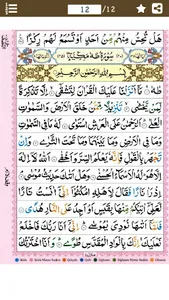 12 /12
هَلْ تُحِسُّ مِنْهُمْ مِّنْ اَحَدٍ اَوْ تَسْمَعُ لَهُمْ رِكْزًا
سُوْرَةُ طٰهٰ مَكِّيَّةٌ
بِسْمِ اللّٰهِ الرَّحْمٰنِ الرَّحِيْمِ
طٰهٰ مَاۤ اَنْزَلْنَا عَلَيْكَ الْقُرْاٰنَ لِتَشْقٰۤى اِلَّا تَذْكِرَةً لِّمَنْ
يَّخْشٰى تَنْزِيْلًا مِّمَّنْ خَلَقَ الْاَرْضَ وَالسَّمٰوٰتِ
الْعُلٰى اَلرَّحْمٰنُ عَلَى الْعَرْشِ اسْتَوٰى لَهٗ مَا فِى السَّمٰوٰتِ
وَمَا فِى الْاَرْضِ وَمَا بَيْنَهُمَا وَمَا تَحْتَ الثَّرٰى وَاِنْ تَجْهَرْ
بِالْقَوْلِ فَاِنَّهٗ يَعْلَمُ السِّرَّ وَاَخْفٰى اَللّٰهُ لَاۤ اِلٰهَ اِلَّا هُوَ لَهُ
الْاَسْمَآءُ الْحُسْنٰى وَهَلْ اَتٰىكَ حَدِيْثُ مُوْسٰى اِذْ رَاٰ
نَارًا فَقَالَ لِاَهْلِهِ امْكُثُوْۤا اِنِّيْۤ اٰنَسْتُ نَارًا لَّعَلِّيْۤ اٰتِيْكُمْ
مِّنْهَا بِقَبَسٍ اَوْ اَجِدُ عَلَى النَّارِ هُدًى فَلَمَّاۤ اَتٰىهَا
نُوْدِيَ يٰمُوْسٰى اِنِّيْۤ اَنَا رَبُّكَ فَاخْلَعْ نَعْلَيْكَ
اِنَّكَ بِالْوَادِ الْمُقَدَّسِ طُوًى وَاَنَا اخْتَرْتُكَ